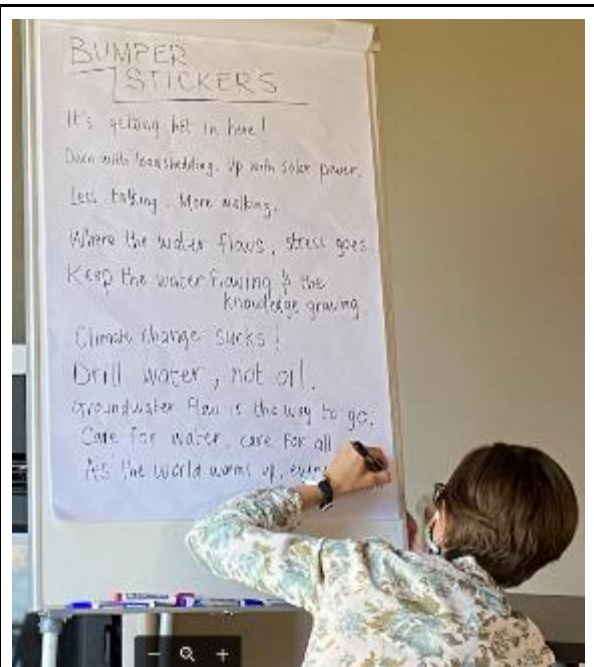 BUMPER
STICKERS
It's getting hot in here!
Down with loadshedding. Up with solar power.
Less talking. More walking.
Where the water flows, stress goes.
Keep the water flowing & the
knowledge growing
Climate change sucks!
Drill water, not oil.
Groundwater flow is the way to go.
Care for water, care for all
As the world warms up,